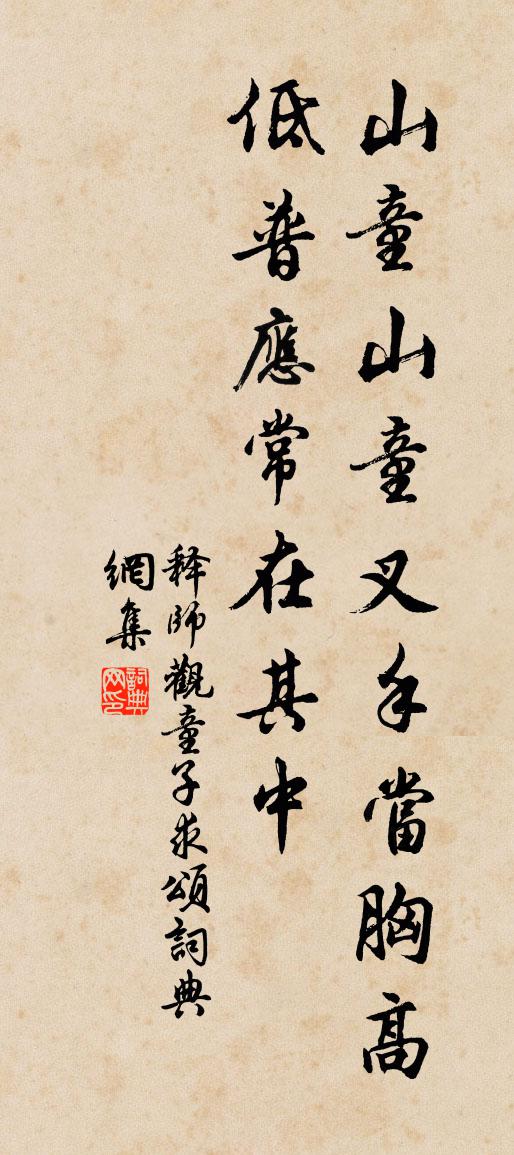 山童山童叉手當胸高
低普應常在其中
释師觀童子求頌詞典
網集
詞典
网印